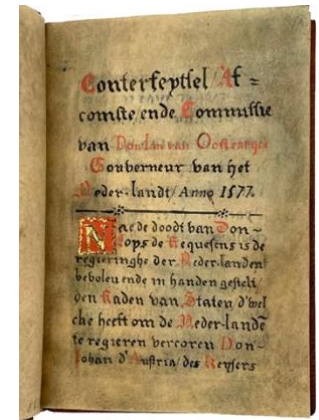 Conterfeytsel / Af=
comste / ende Commissie
van Don Jan van Oostenryck
Gouverneur van het
Neder-landt / Anno 1577.
Nae de doodt van Don-
Lops de Requesens is de
regieringhe der Neder-landen
bevolen ende in handen gestelt
den Raden van Staten d'wel
che heeft om de Neder-landē
te regieren vercoren Don-
Johan d'Austria / des Keysers